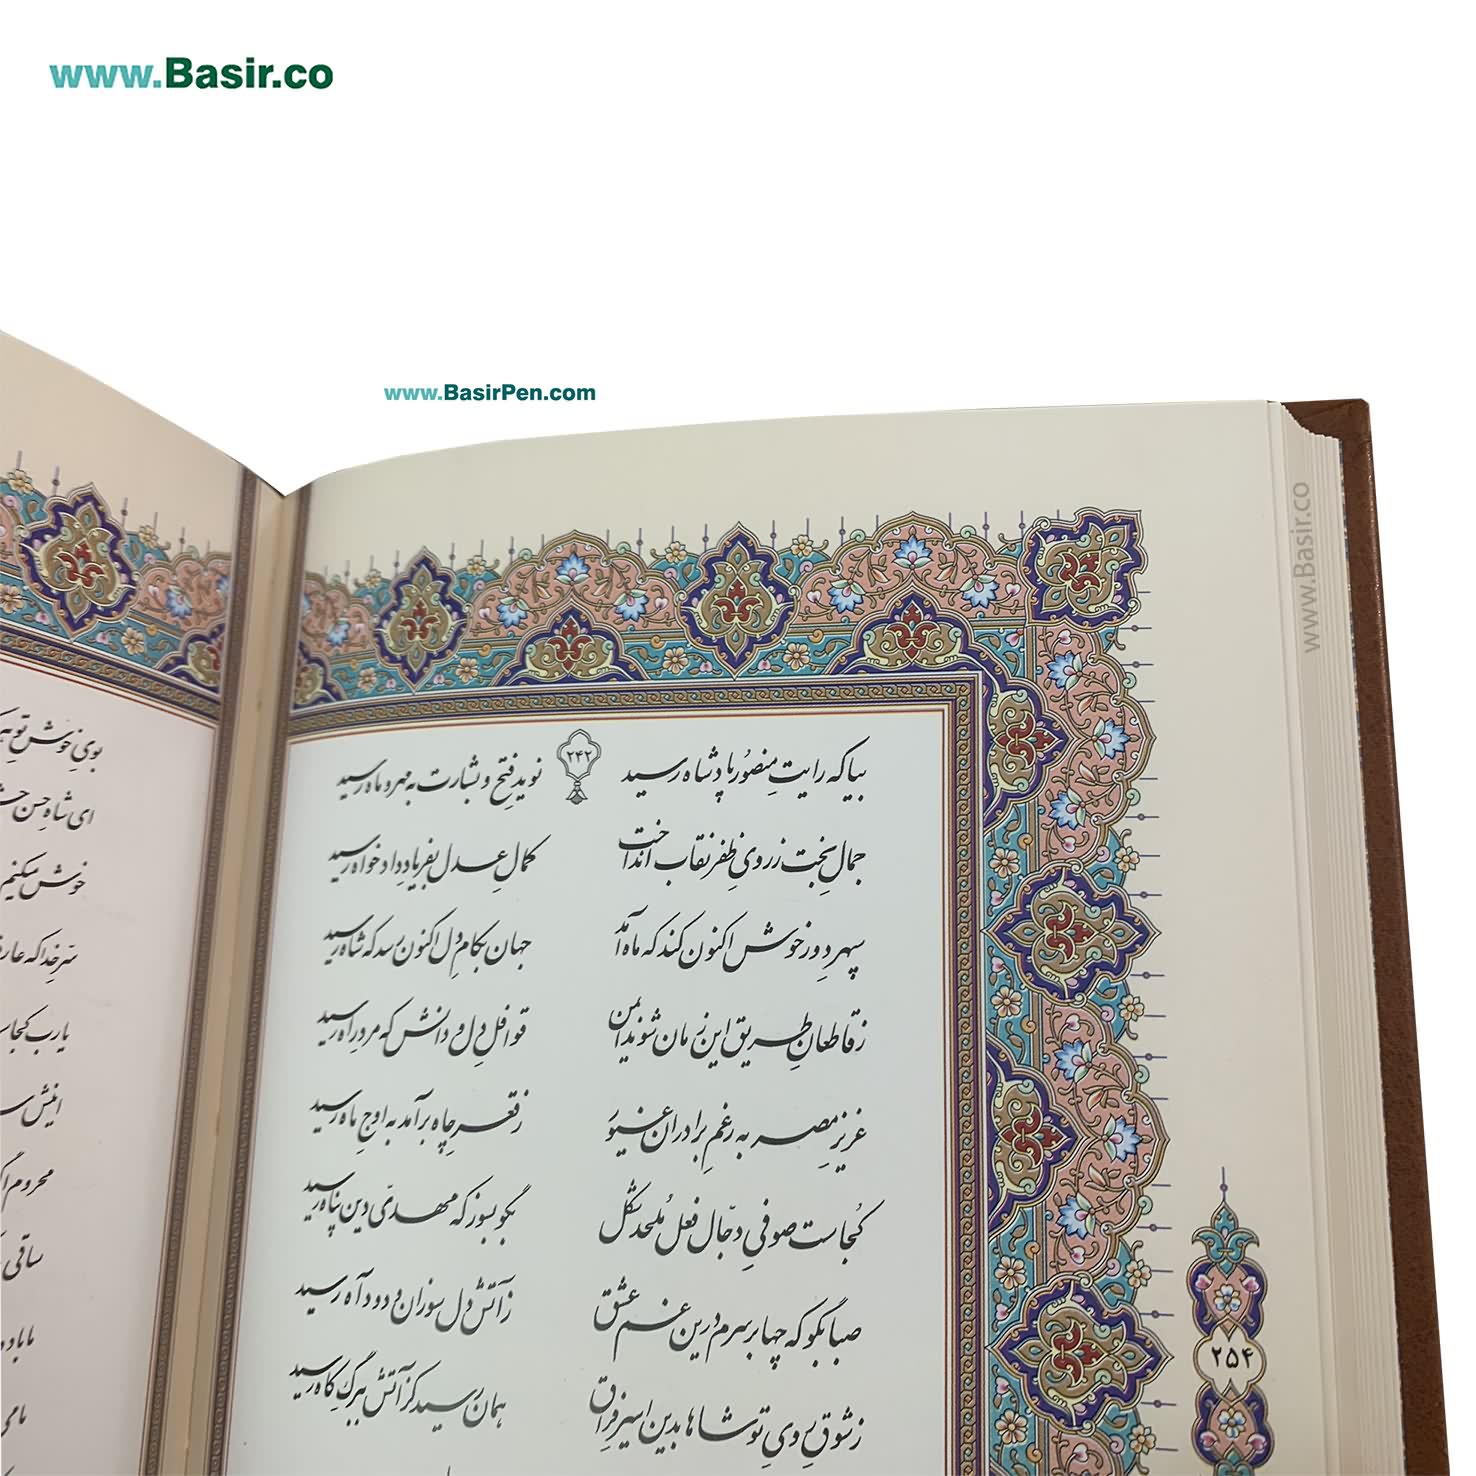 www.Basir.co
www.BasirPen.com
www.Basir.co
۲۴۲
بیا که رایتِ منصورِ پادشاه رسید نویدِ فتح و بشارت به مهر و ماه رسید
جمالِ بخت ز رویِ ظفر نقاب انداخت کمالِ عدل بفریادِ دادخواه رسید
سپهر دورِ خوش اکنون کند که ماه آمد جهان بکامِ دل اکنون رسد که شاه رسید
ز قاطعانِ طریق این زمان شوند ایمن قوافلِ دل و دانش که مردِ راه رسید
عزیزِ مصر به رغمِ برادرانِ غیور ز قعرِ چاه برآمد به اوجِ ماه رسید
کجاست صوفیِ دجّال فعلِ مُلحد شکل بگو بسوز که مهدیِ دین پناه رسید
صبا بگو که چها بر سرم درین غمِ عشق ز آتشِ دلِ سوزان و دودِ آه رسید
ز شوقِ رویِ تو شاها بدین اسیرِ فراق همان رسید کز آتش ببرگِ کاه رسید
۲۵۴
بویِ خوشِ تو هر
ای شاهِ حسن
خوش میکنیم
سرّ خدا که عارف
یارب کجاست
اینش
محروم اگر
ساقی
ما باده